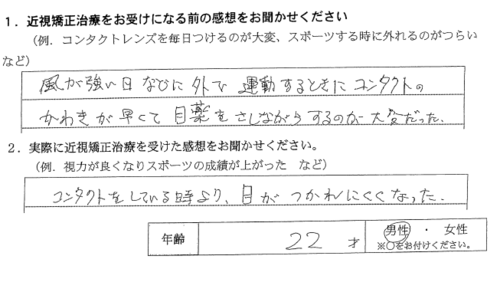 1．近視矯正治療をお受けになる前の感想をお聞かせください
（例．コンタクトレンズを毎日つけるのが大変、スポーツする時に外れるのがつらい
など）
風が強い日なびに外で運動するときにコンタクトの
かわきが早くて目薬をさしながらするのが大変だった.
2．実際に近視矯正治療を受けた感想をお聞かせください。
（例．視力が良くなりスポーツの成績が上がった　など）
コンタクトをしている時より、目がつかれにくくなった.
年齢　22　才　男性　・　女性
※○をお付けください。